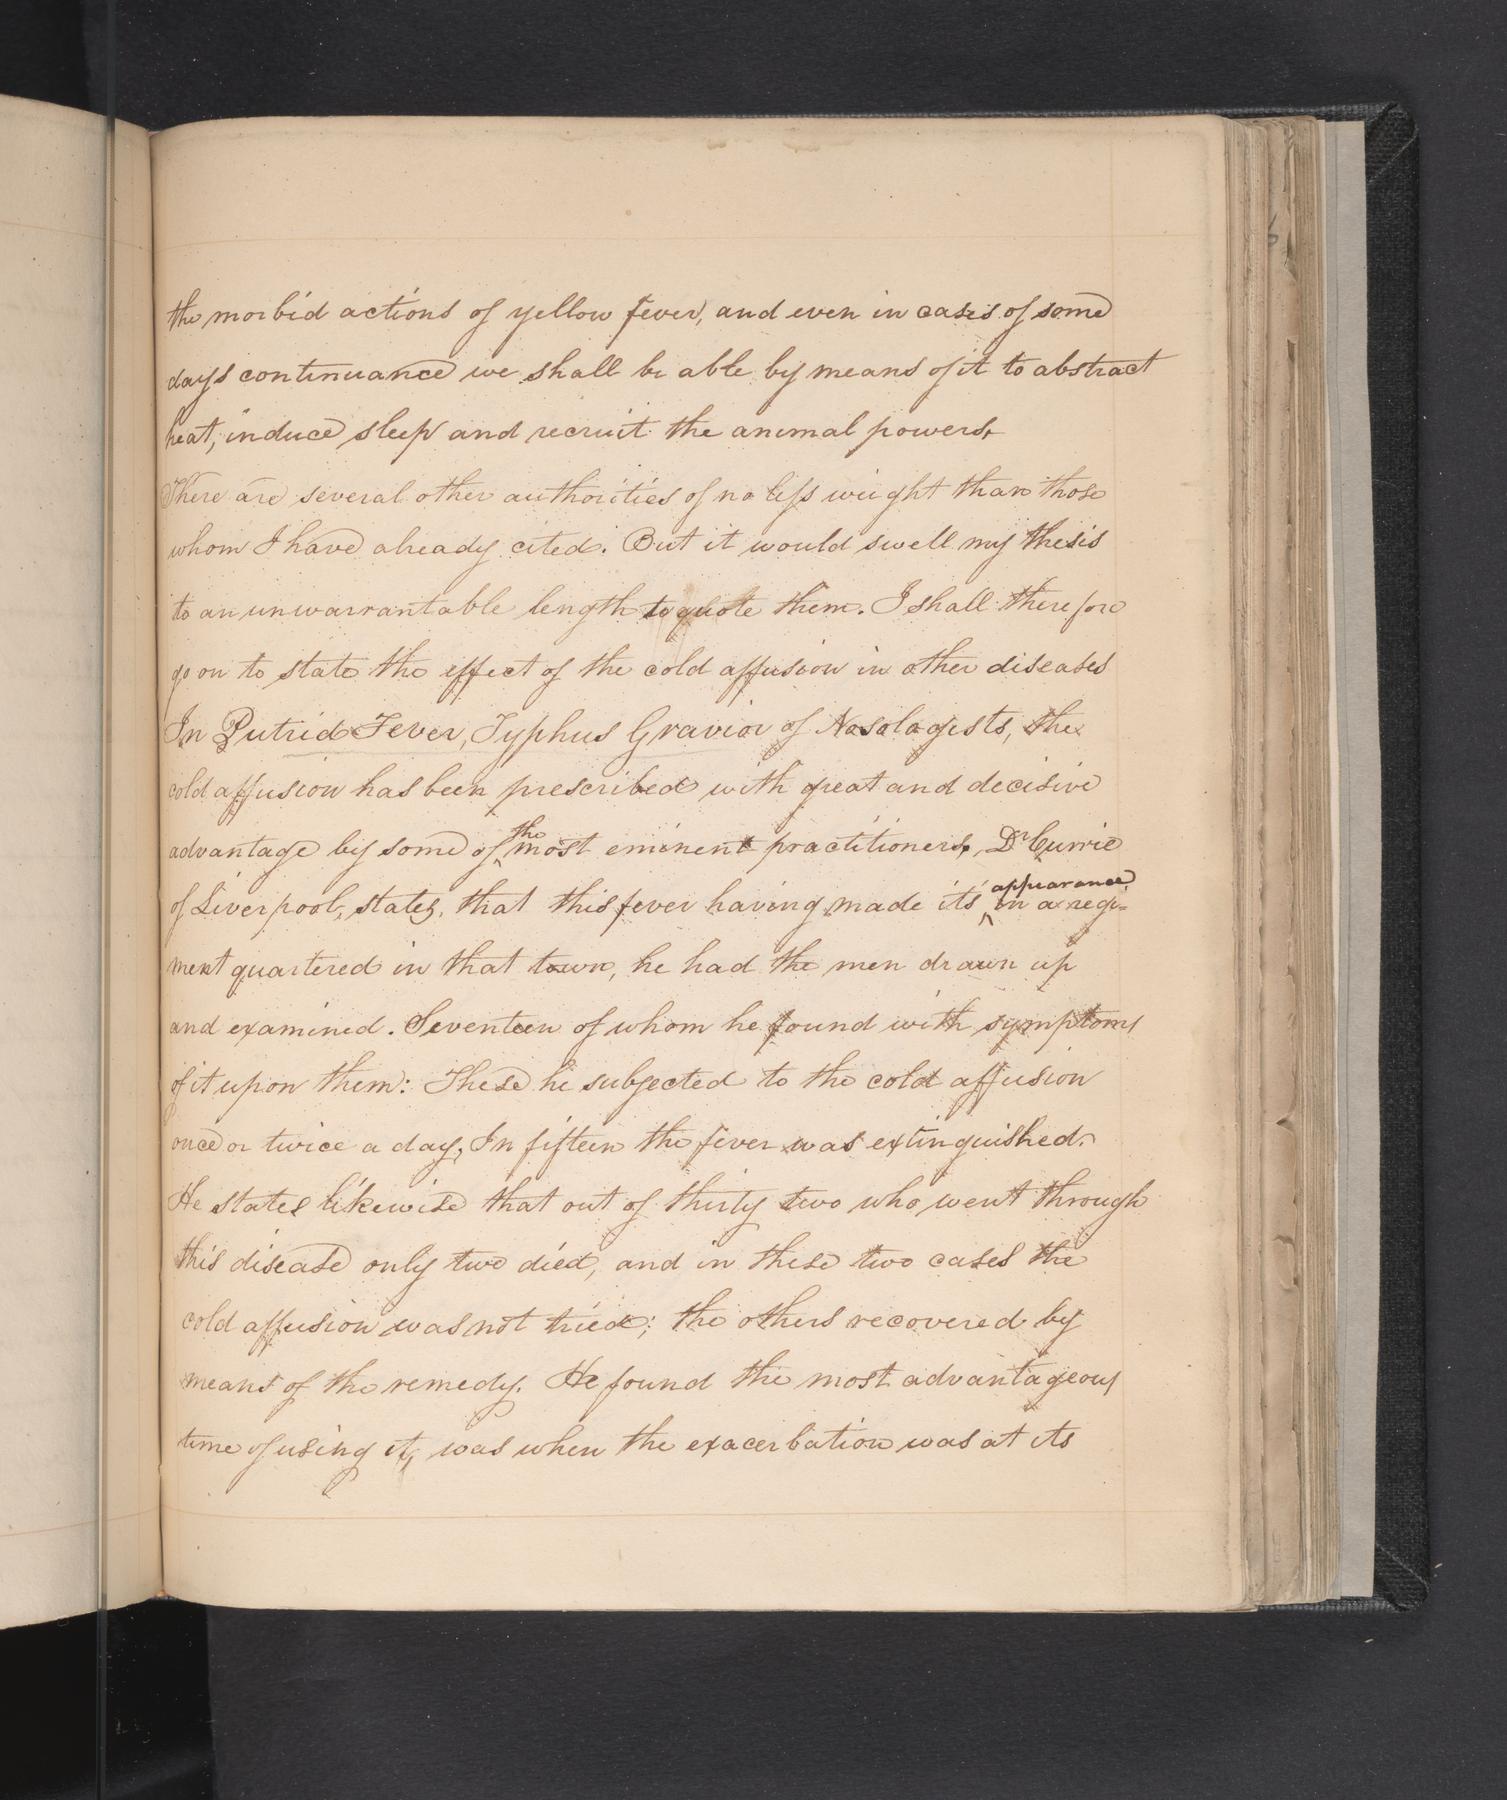 the morbid actions of yellow fever, and even in cases of some
days continuance we shall be able by means of it to abstract
heat, induce sleep and recruit the animal powers,
There are several other authorities of no less weight than those
whom I have already cited. But it would swell my thesis
to an unwarrantable length to quote them. I shall therefore
go on to state the effect of the cold affusion in other diseases
In Putrid Fever, Typhus Gravior of Nosologists, the
cold affusion has been prescribed with great and decisive
advantage by some of the most eminent practitioners, Dr Currie
of Liverpool, states, that this fever having made its appearance in a regi=
ment quartered in that town, he had the men drawn up
and examined. Seventeen of whom he found with symptoms
of it upon them: These he subjected to the cold affusion
once or twice a day, In fifteen the fever was extinguished.
He states likewise that out of thirty two who went through
this disease only two died, and in these two cases the
cold affusion was not tried; the others recovered by
means of the remedy. He found the most advantageous
time of using it, was when the exacerbation was at its